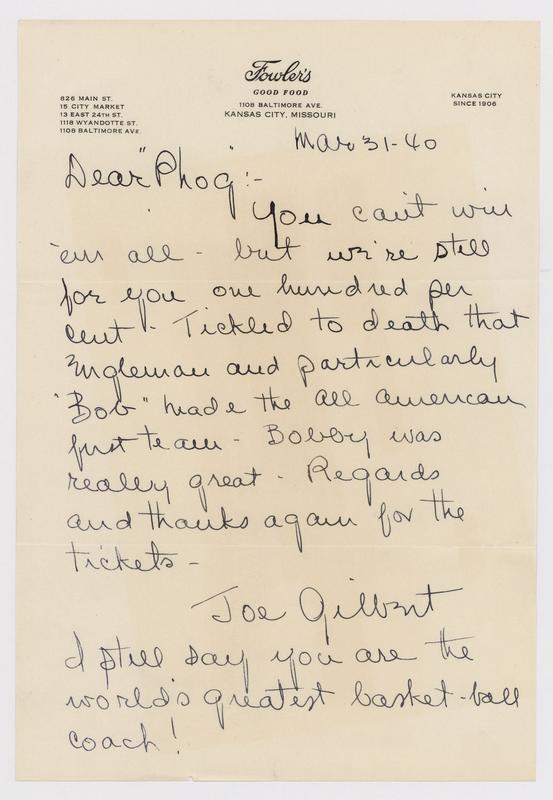 Fowler's
GOOD FOOD
826 MAIN ST.
15 CITY MARKET
13 EAST 24TH ST.
1118 WYANDOTTE ST.
1108 BALTIMORE AVE.
1108 BALTIMORE AVE.
KANSAS CITY, MISSOURI
KANSAS CITY
SINCE 1906
Mar 31-40
Dear "Phog":-
You can't win
'em all - but we're still
for you one hundred per
cent - Tickled to death that
Engleman and particularly
"Bob" made the all american
first team - Bobby was
really great - Regards
and thanks again for the
tickets -
Joe Gilbert
I still say you are the
world's greatest basket-ball
coach!